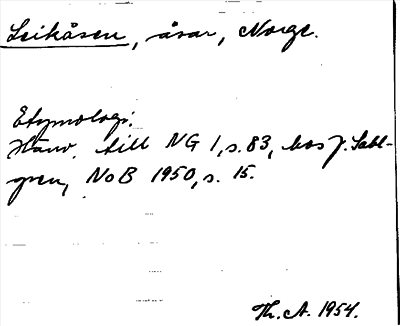 Leikåsen, åsar, Norge.
Etymologi.
Hänv. till NG 1, s. 83, hos J. Sahl-
gren, NoB 1950, s. 15.
Th. A. 1954.